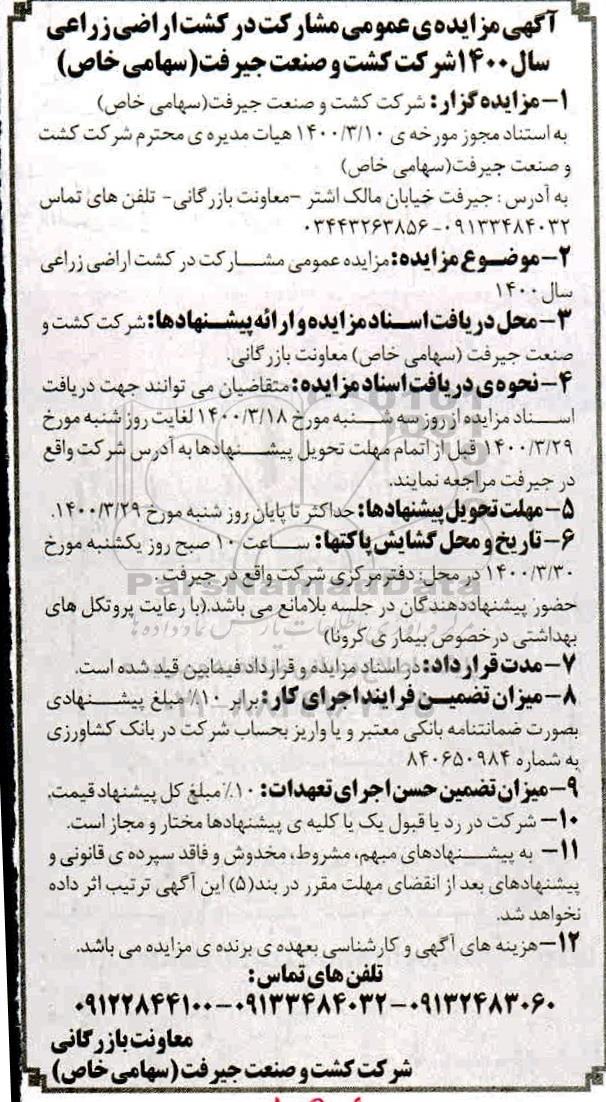 آگهی مزایده‌ی عمومی مشارکت در کشت اراضی زراعی
سال ۱۴۰۰ شرکت کشت و صنعت جیرفت(سهامی خاص)
۱- مزایده گزار: شرکت کشت و صنعت جیرفت(سهامی خاص)
به استناد مجوز مورخه ی ۱۴۰۰/۳/۱۰ هیات مدیره ی محترم شرکت کشت
و صنعت جیرفت(سهامی خاص)
به آدرس : جیرفت خیابان مالک اشتر -معاونت بازرگانی- تلفن های تماس
۰۹۱۳۳۴۸۴۰۳۲-۰۳۴۴۳۲۶۳۸۵۶
۲- موضوع مزایده: مزایده عمومی مشارکت در کشت اراضی زراعی
سال ۱۴۰۰
۳- محل دریافت اسناد مزایده و ارائه پیشنهادها: شرکت کشت و
صنعت جیرفت (سهامی خاص) معاونت بازرگانی.
۴- نحوه ی دریافت اسناد مزایده: متقاضیان می توانند جهت دریافت
اسناد مزایده از روز سه شنبه مورخ ۱۴۰۰/۳/۱۸ لغایت روز شنبه مورخ
۱۴۰۰/۳/۲۹ قبل از اتمام مهلت تحویل پیشنهادها به آدرس شرکت واقع
در جیرفت مراجعه نمایند.
۵- مهلت تحویل پیشنهادها: حداکثر تا پایان روز شنبه مورخ ۱۴۰۰/۳/۲۹.
۶- تاریخ و محل گشایش پاکتها: ساعت ۱۰ صبح روز یکشنبه مورخ
۱۴۰۰/۳/۳۰ در محل: دفتر مرکزی شرکت واقع در جیرفت .
ParsNamadData
حضور پیشنهاددهندگان در جلسه بلامانع می باشد.(با رعایت پروتکل های
بهداشتی در خصوص بیماری کرونا)
۷- مدت قرارداد: در اسناد مزایده و قرارداد فیمابین قید شده است.
۸- میزان تضمین فرایند اجرای کار: برابر ۱۰٪ مبلغ پیشنهادی
بصورت ضمانتنامه بانکی معتبر و یا واریز بحساب شرکت در بانک کشاورزی
به شماره ۸۴۰۶۵۰۹۸۴
۹- میزان تضمین حسن اجرای تعهدات: ۱۰٪ مبلغ کل پیشنهاد قیمت.
۱۰- شرکت در رد یا قبول یک یا کلیه ی پیشنهادها مختار و مجاز است.
۱۱- به پیشنهادهای مبهم، مشروط، مخدوش و فاقد سپرده ی قانونی و
پیشنهادهای بعد از انقضای مهلت مقرر در بند(۵) این آگهی ترتیب اثر داده
نخواهد شد.
۱۲-هزینه های آگهی و کارشناسی بعهده ی برنده ی مزایده می باشد.
تلفن های تماس:
۰۹۱۳۲۴۸۳۰۶۰-۰۹۱۳۳۴۸۴۰۳۲-۰۹۱۲۲۸۴۴۱۰۰
معاونت بازرگانی
شرکت کشت و صنعت جیرفت (سهامی خاص)